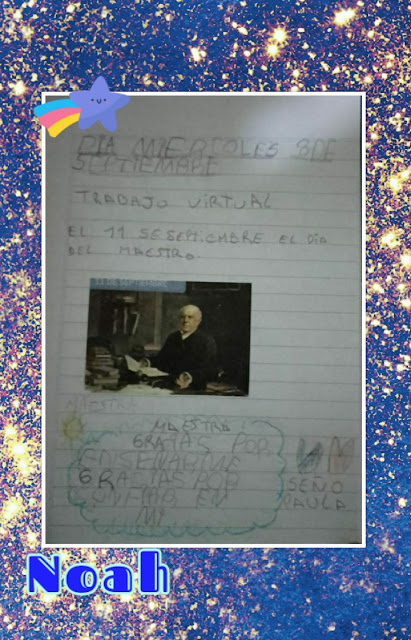 DIA MIERCOLES 8 DE
SEPTIEMBRE
TRADAJO VIRTUAL
EL 11 SESEPTIEMBRE EL DIA
DEL MAESTRO.
11 DE SEPTIEMBRE
MAESTR
MAESTRA
GRATAS POR
ENSEÑARME
GRACIAS POR
CONFIAR EN
MI
SEÑO
PAULA
Noah